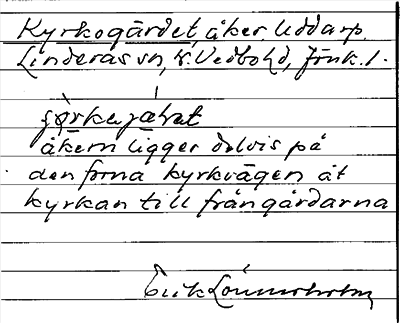 Kyrkogärdet, åker, Uddarp.
Linderås sn, N. Vedbo hd, Jönk. l.
åkern ligger delvis på
den forna kyrkvägen åt
kyrkan till från gårdarna
Erik Lönnerholm